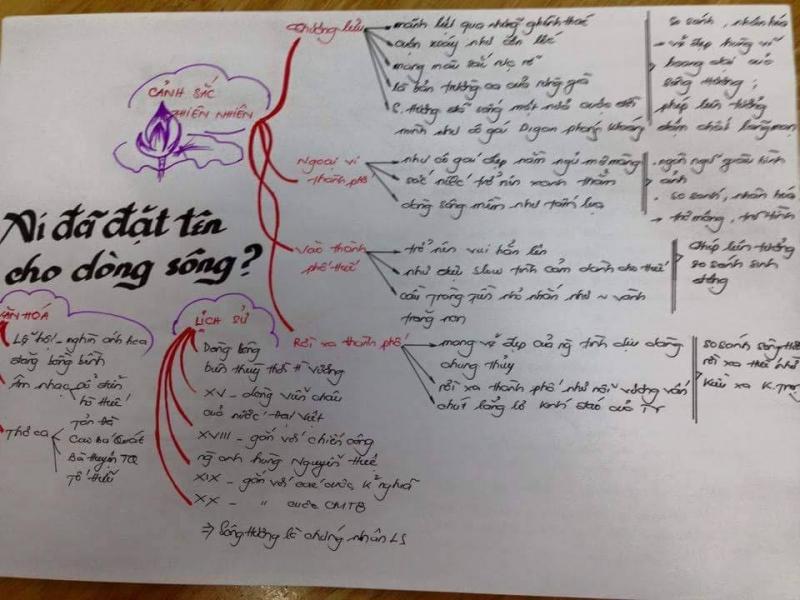 CẢNH SẮC
THIÊN NHIÊN
Ai đã đặt tên
cho dòng sông?
Thượng lưu
mãnh liệt qua những ghềnh thác
cuộn xoáy như cơn lốc
mang màu sắc rực rỡ
là bản trường ca của rừng già
S. Hương đã sống một nửa cuộc đời
mình như cô gái Digan phóng khoáng
so sánh, nhân hóa
→ vẻ đẹp hùng vĩ
hoang dại của
sông Hương;
phép liên tưởng
đậm chất lãng mạn
Ngoại vi
thành phố
như cô gái đẹp nằm ngủ mơ màng
sắc nước trở nên xanh thẳm
dòng sông mềm như tấm lụa
. ngôn ngữ giàu hình
ảnh
. so sánh, nhân hóa
→ thơ mộng, trữ tình
Vào thành
phố Huế
trở nên vui hẳn lên
như điệu slow tình cảm dành cho Huế
cầu Tràng Tiền nhỏ nhắn như ~ vành
trăng non
phép liên tưởng
so sánh sinh
động
Rời xa thành phố
mang vẻ đẹp của ng tình dịu dàng
chung thủy
rời xa thành phố như nỗi vương vấn
chút lẳng lơ kín đáo của TY
so sánh sông Hươ
rời xa Huế như
Kiều xa K.Trọ
VĂN HÓA
Lễ hội - nghìn ánh hoa
đăng bồng bềnh
Âm nhạc cổ điển
hò Huế
Thơ ca
Tản Đà
Cao Bá Quát
Bà Huyện TQ
Tố Hữu
LỊCH SỬ
Dòng sông
thời
XV - dòng
của nước Đại Việt
XVIII - gắn với chiến công
ng anh hùng Nguyễn Huệ
XIX - gắn với các cuộc k/nghĩa
XX - " cuộc CMT8
⇒ Sông Hương là chứng nhân LS